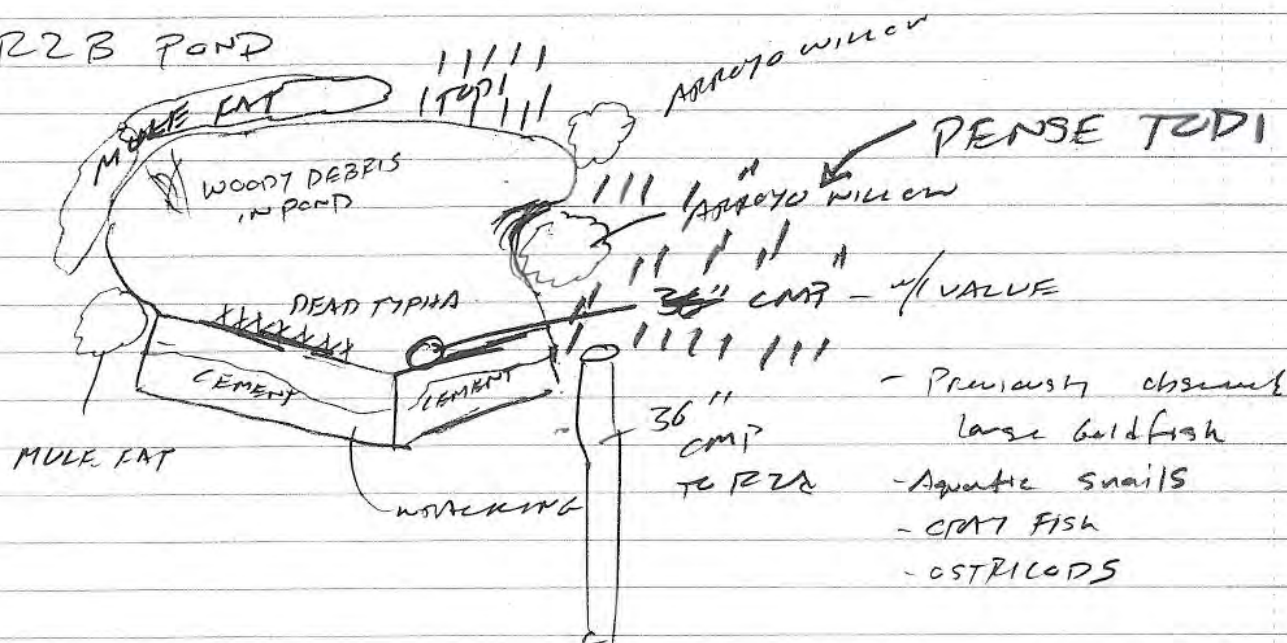 R2B POND
MULE FAT
TODI
ARROYO WILLOW
DENSE TODI
WOODY DEBRIS
IN POND
ARROYO WILLOW
DEAD TYPHA
36" CMP - w/ VALUE
CEMENT
CEMENT
MULE FAT
WRACKING
36"
CMP
TO R2A
- Previously observed
large Goldfish
- Aquatic snails
- CRAY FISH
- OSTRICODS